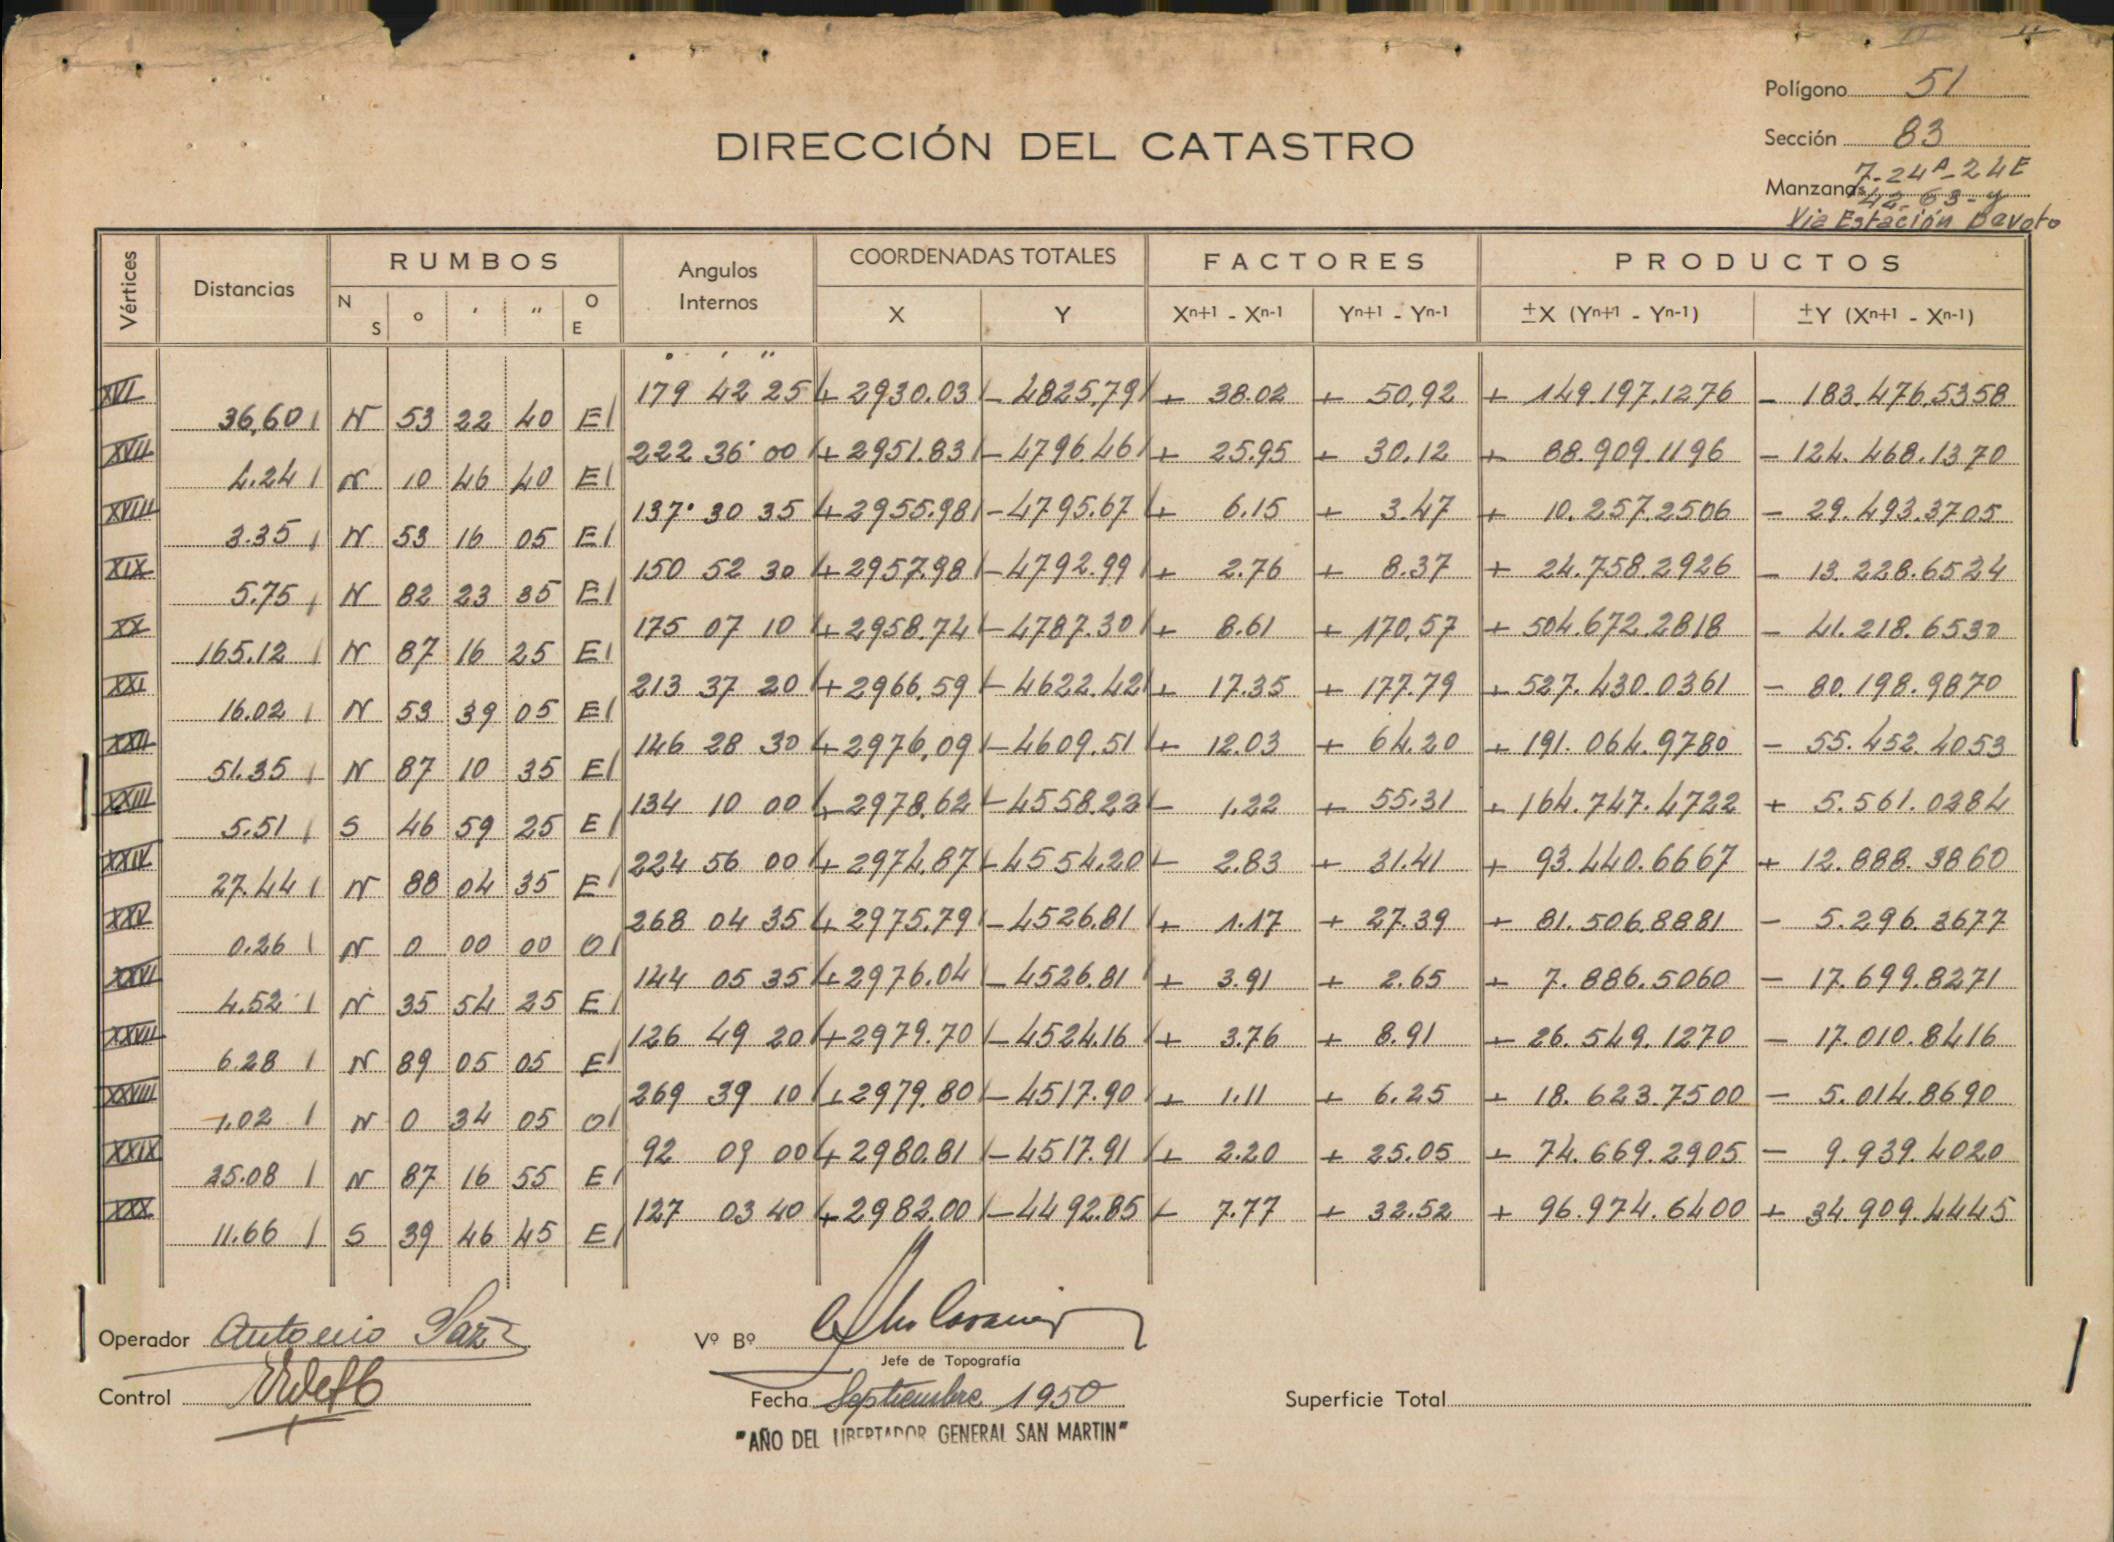 Polígono 51
DIRECCIÓN DEL CATASTRO
Sección 83
Manzanas 7-24A-24E
42-63-y
Via Estación Devoto
Vértices Distancias RUMBOS Angulos Internos COORDENADAS TOTALES FACTORES PRODUCTOS
N S ° ' " O E X Y Xn+1 - Xn-1 Yn+1 - Yn-1 ±X (Yn+1 - Yn-1) ±Y (Xn+1 - Xn-1)
° ' "
XVI 179 42 25 + 2930.03 - 4825,79 + 38.02 + 50,92 + 149.197.1276 - 183.476.5358
36,60 N 53 22 40 E
XVII 222 36' 00 + 2951.83 - 4796.46 + 25.95 + 30.12 + 88.909.1196 - 124.468.1370
4.24 N 10 46 40 E
XVIII 137° 30 35 + 2955.98 - 4795.67 + 6.15 + 3.47 + 10.257.2506 - 29.493.3705
3.35 N 53 16 05 E
XIX 150 52 30 + 2957.98 - 4792.99 + 2.76 + 8.37 + 24.758.2926 - 13.228.6524
5.75 N 82 23 35 E
XX 175 07 10 + 2958.74 - 4787.30 + 8.61 + 170,57 + 504.672.2818 - 41.218.6530
165.12 N 87 16 25 E
XXI 213 37 20 + 2966,59 - 4622.42 + 17.35 + 177.79 + 527.430.0361 - 80.198.9870
16.02 N 53 39 05 E
XXII 146 28 30 + 2976,09 - 4609.51 + 12.03 + 64.20 + 191.064.9780 - 55.452.4053
51.35 N 87 10 35 E
XXIII 134 10 00 + 2978.62 - 4558.22 - 1.22 + 55.31 + 164.747.4722 + 5.561.0284
5.51 S 46 59 25 E
XXIV 224 56 00 + 2974.87 - 4554.20 - 2.83 + 31.41 + 93.440.6667 + 12.888.3860
27.44 N 88 04 35 E
XXV 268 04 35 + 2975.79 - 4526.81 + 1.17 + 27.39 + 81.506.8881 - 5.296.3677
0.26 N 0 00 00 O
XXVI 144 05 35 + 2976.04 - 4526.81 + 3.91 + 2.65 + 7.886.5060 - 17.699.8271
4.52 N 35 54 25 E
XXVII 126 49 20 + 2979.70 - 4524.16 + 3.76 + 8.91 + 26.549.1270 - 17.010.8416
6.28 N 89 05 05 E
XXVIII 269 39 10 + 2979.80 - 4517.90 + 1.11 + 6.25 + 18.623.7500 - 5.014.8690
1.02 N 0 34 05 O
XXIX 92 09 00 + 2980.81 - 4517.91 + 2.20 + 25.05 + 74.669.2905 - 9.939.4020
25.08 N 87 16 55 E
XXX 127 03 40 + 2982.00 - 4492.85 - 7.77 + 32.52 + 96.974.6400 + 34.909.4445
11.66 S 39 46 45 E
Operador Antonio
Vº Bº
Jefe de Topografía
Control
Fecha Septiembre 1950
Superficie Total
"AÑO DEL LIBERTADOR GENERAL SAN MARTIN"